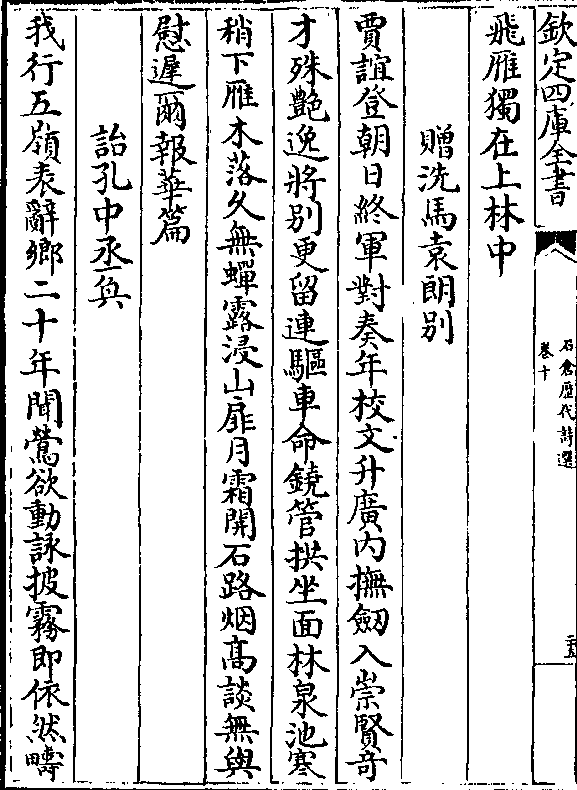 欽定四庫全書
石倉歷代詩選
卷十
飛雁獨在上林中
贈洗馬袁朗別
賈誼登朝日終軍對奏年校文升廣內撫劒入崇賢竒
才殊艶逸將別更留連驅車命鐃管拱坐面林泉池寒
稍下雁木落久無蟬露浸山扉月霜開石路烟高談無與
慰遲爾報華篇
詒孔中丞奐
我行五嶺表辭鄉二十年聞鶯欲動詠披霧即依然疇